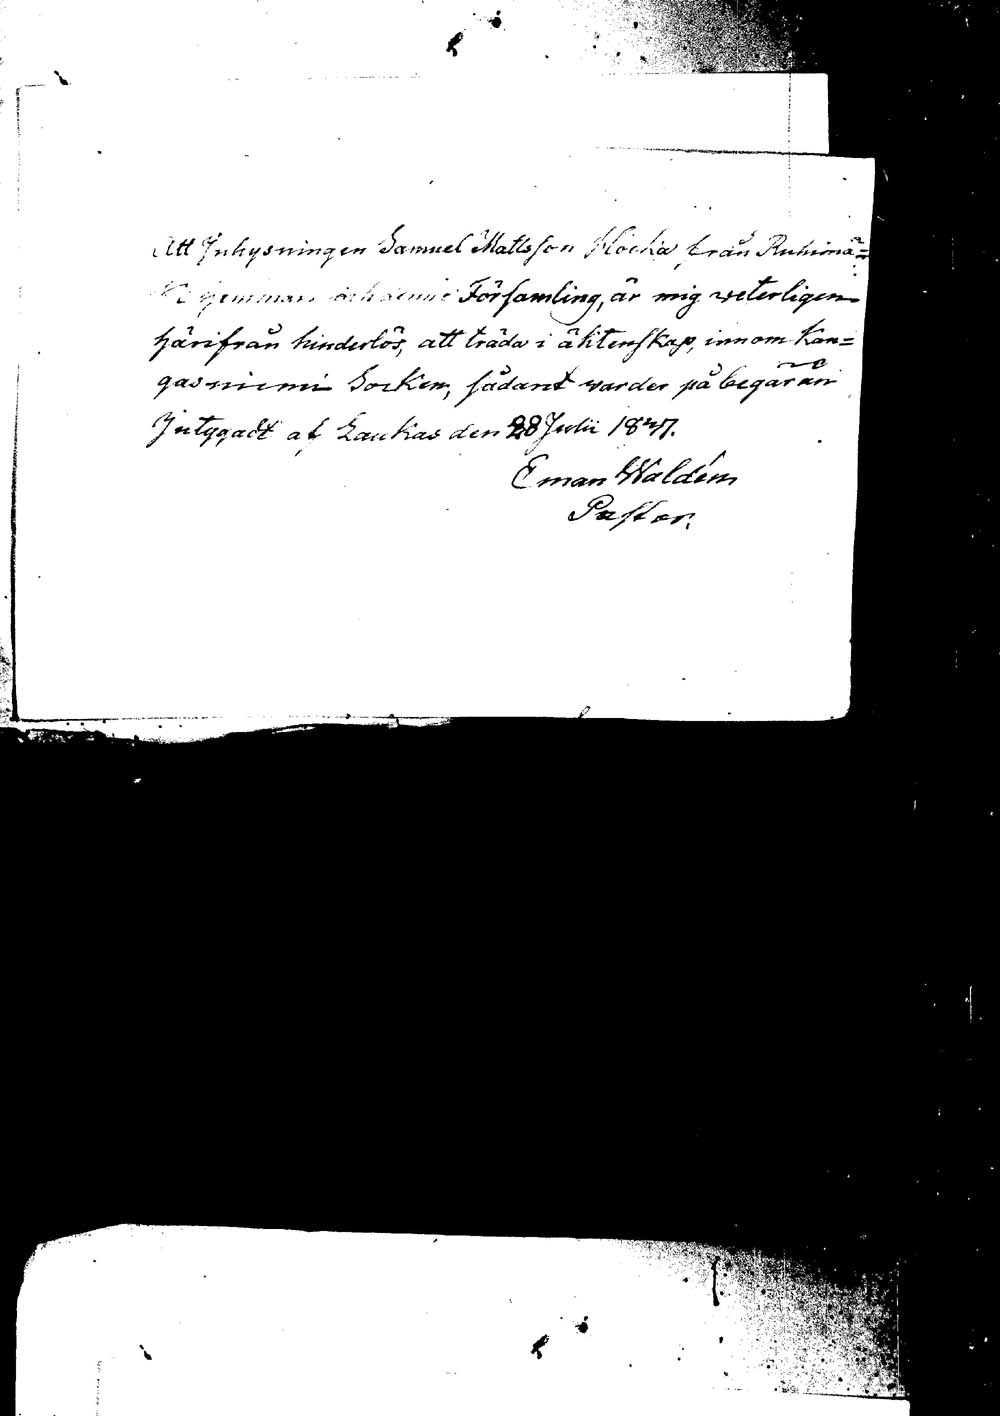 Att Inhysningen Samuel Mattsson Hokka från Ruhimä=
ki Hemman och denne Församling, är mig veterligen
härifrån hinderlös, att träda i äktenskap, innom Kan=
gasniemi Socken, sådant warder på begäran
Intygadt af Laukas den 28 Julii 1847.
Eman Waldén
Pastor.